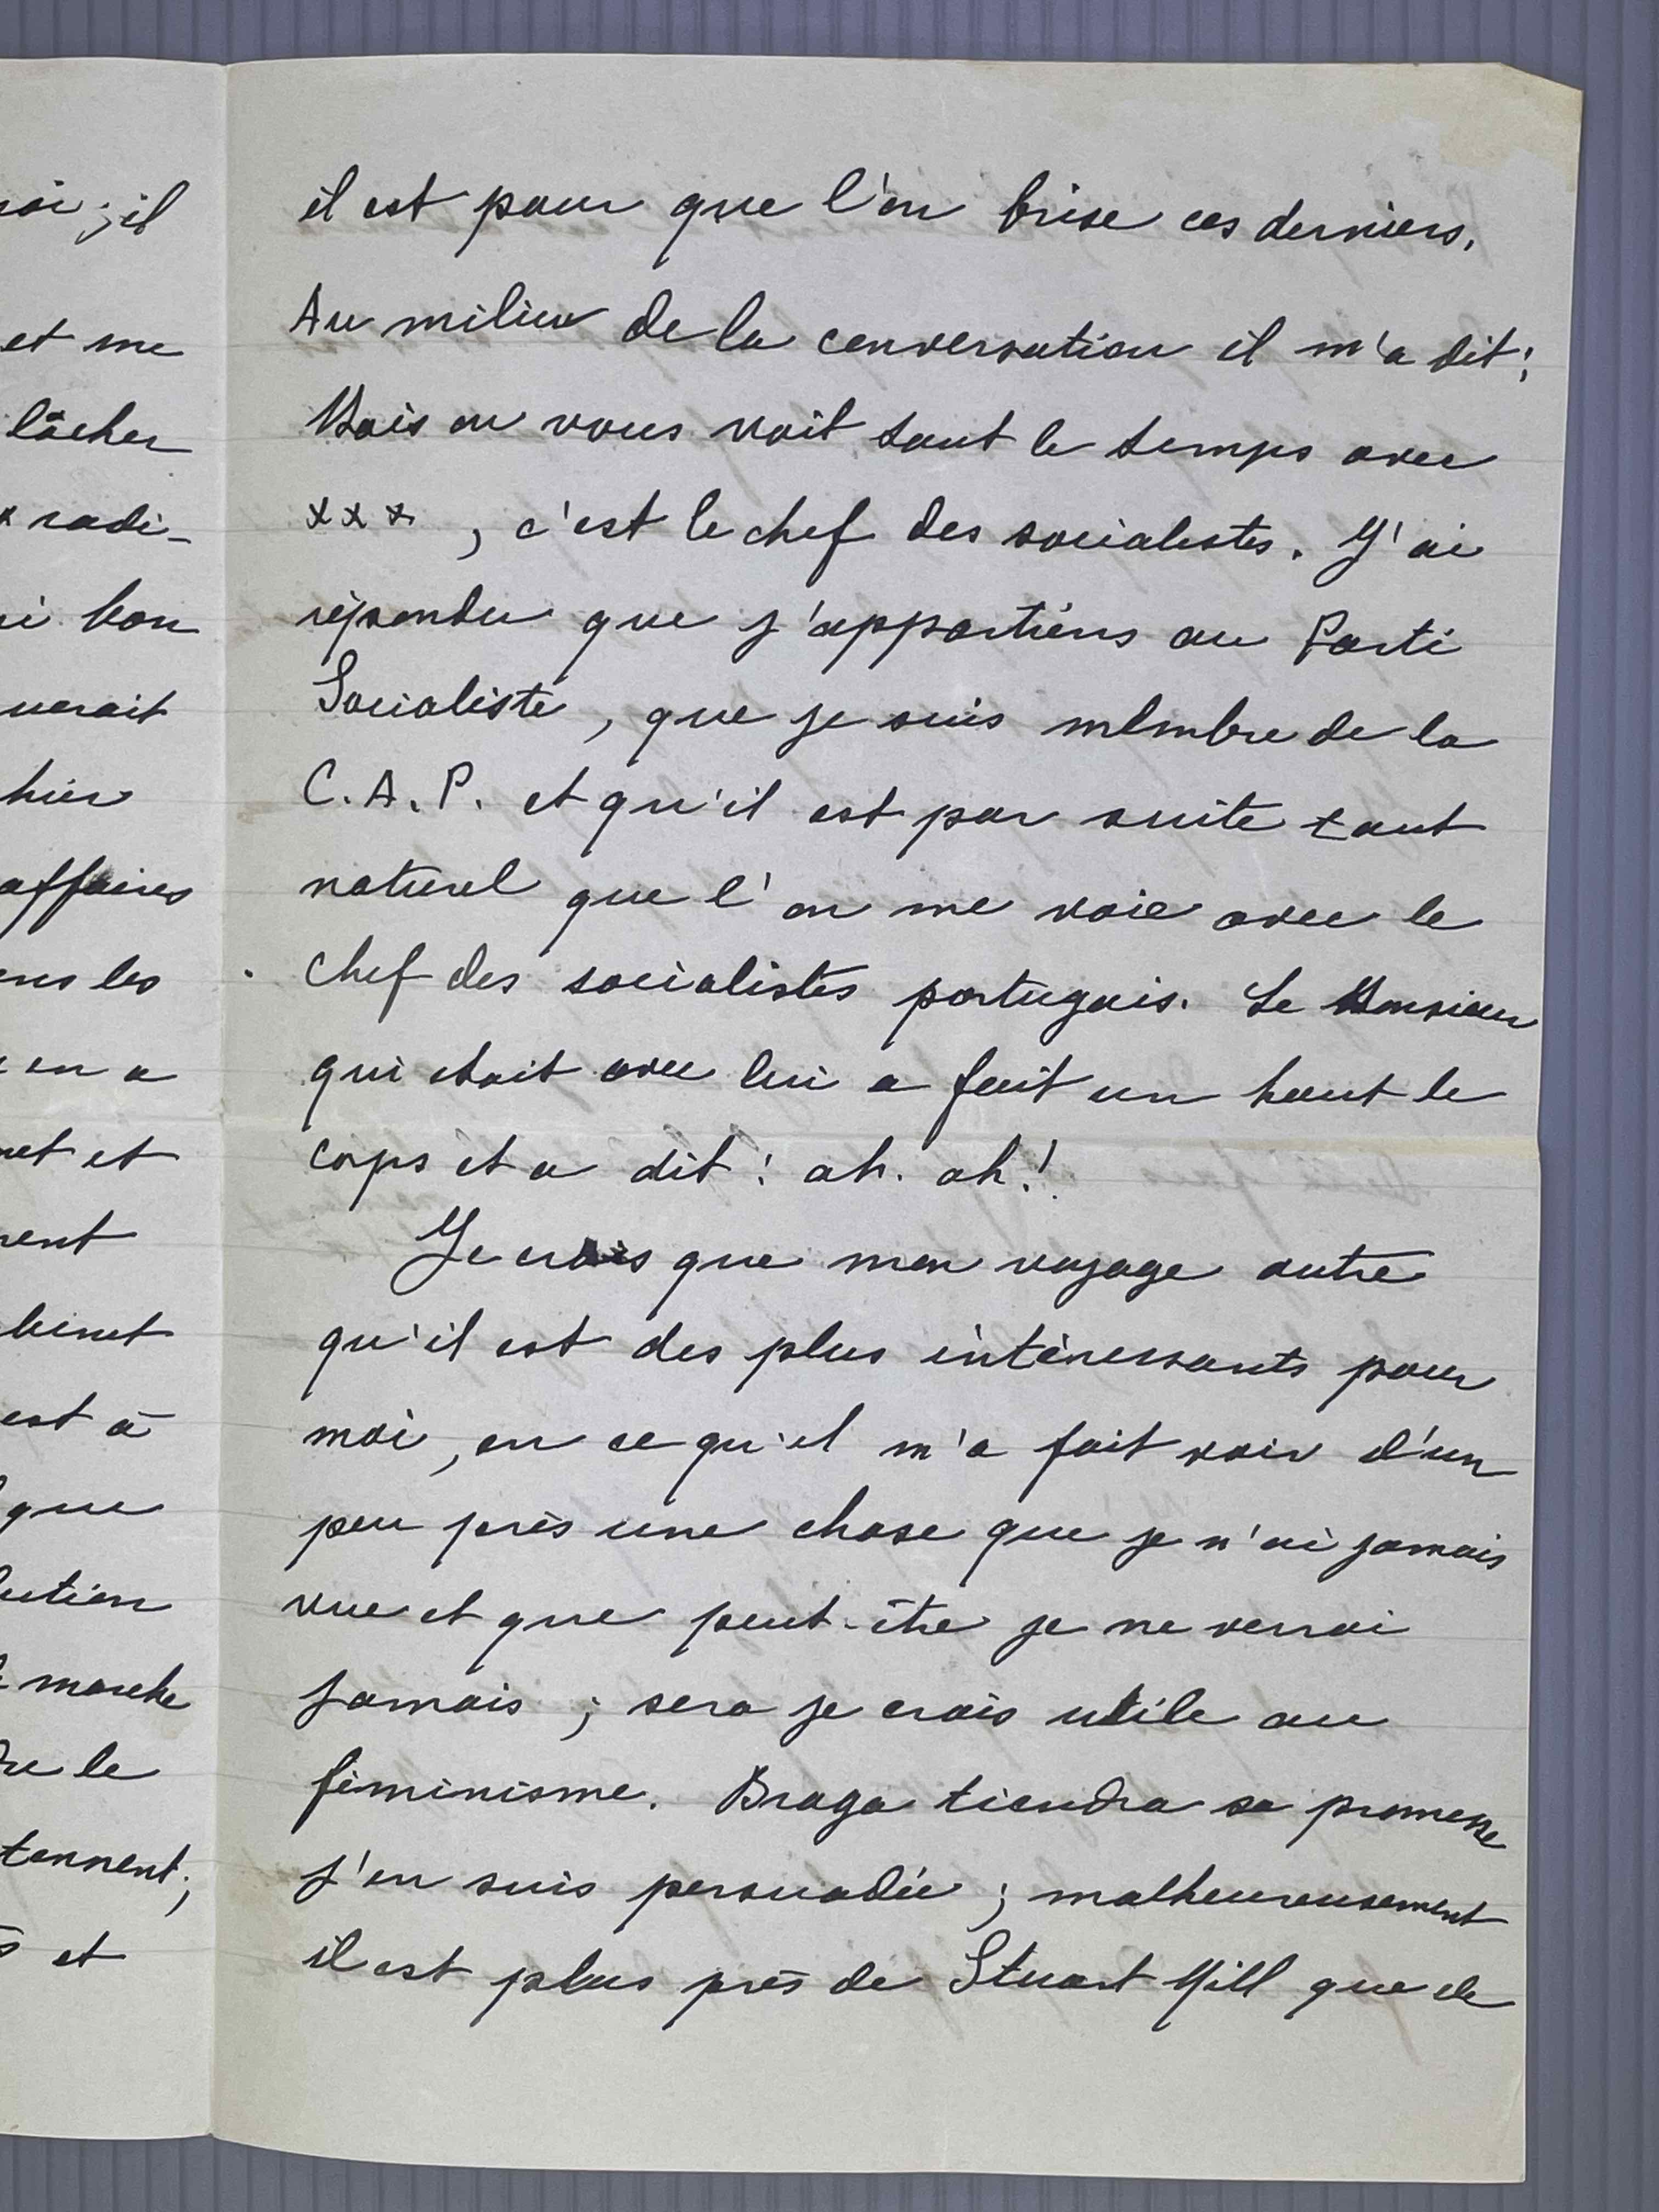 il est pour que l'on brise ces derniers.
Au milieu de la conversation il m'a dit :
Mais on vous voit tout le temps avec
xxx , c'est le chef des socialistes. J'ai
répondu que j'appartiens au Parti
Socialiste, que je suis membre de la
C.A.P. et qu'il est par suite tout
naturel que l'on me voie avec le
chef des socialistes portugais. Le Monsieur
qui etait avec lui a fait un haut le
corps et a dit : ah. ah!
Je crois que mon voyage outre
qu'il est des plus intéressants pour
moi, en ce qu'il m'a fait voir d'un
peu près une chose que je n'ai jamais
vue et que peut-être je ne verrai
jamais ; sera je crois utile au
féminisme. Braga tiendra sa promesse
j'en suis persuadée ; malheureusement
il est plus près de Stuart Mill que de
; il
et me
lâcher
radi-
bon
hier
affaires
les
en a
et
est à
que
marche
le
et